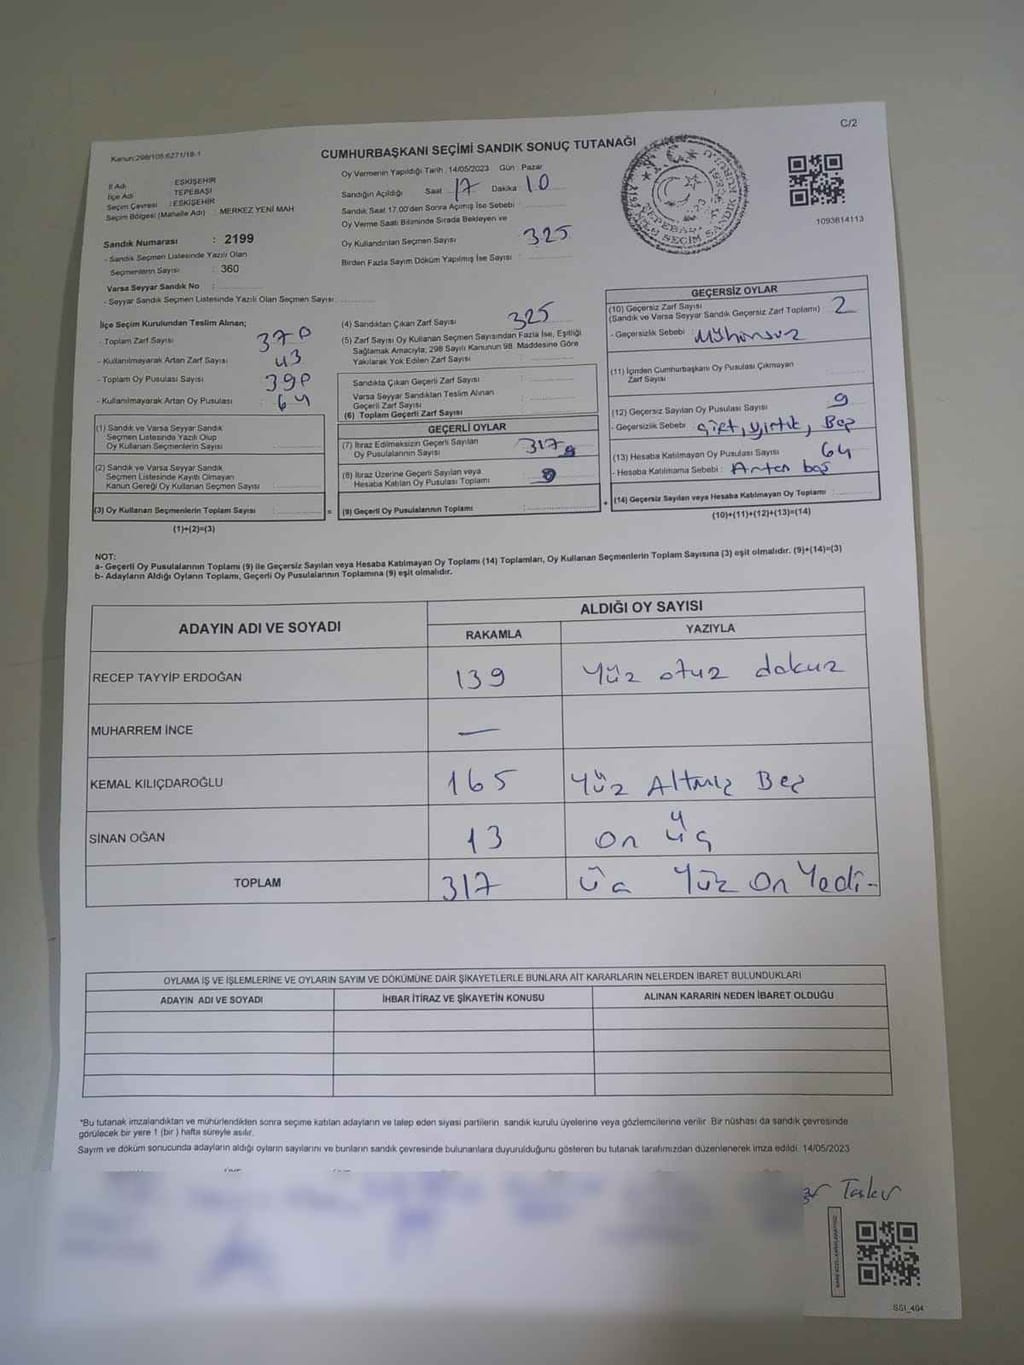 C/2
Kanun:298/105:6271/18-1
CUMHURBAŞKANI SEÇİMİ SANDIK SONUÇ TUTANAĞI
İl Adı : ESKİŞEHİR
İlçe Adı : TEPEBAŞI
Seçim Çevresi : ESKİŞEHİR
Seçim Bölgesi (Mahalle Adı) : MERKEZ YENİ MAH
Sandık Numarası : 2199
- Sandık Seçmen Listesinde Yazılı Olan
Seçmenlerin Sayısı : 360
Varsa Seyyar Sandık No :
- Seyyar Sandık Seçmen Listesinde Yazılı Olan Seçmen Sayısı :
Oy Vermenin Yapıldığı Tarih : 14/05/2023 Gün : Pazar
Sandığın Açıldığı Saat 17 Dakika 10
Sandık Saat 17.00'den Sonra Açılmış İse Sebebi :
Oy Verme Saati Bitiminde Sırada Bekleyen ve
Oy Kullandırılan Seçmen Sayısı : 325
Birden Fazla Sayım Döküm Yapılmış İse Sayısı :
1093614113
İlçe Seçim Kurulundan Teslim Alınan;
- Toplam Zarf Sayısı : 370
- Kullanılmayarak Artan Zarf Sayısı : 43
- Toplam Oy Pusulası Sayısı : 390
- Kullanılmayarak Artan Oy Pusulası : 64
(1) Sandık ve Varsa Seyyar Sandık
Seçmen Listesinde Yazılı Olup
Oy Kullanan Seçmenlerin Sayısı :
(2) Sandık ve Varsa Seyyar Sandık
Seçmen Listesinde Kayıtlı Olmayan
Kanun Gereği Oy Kullanan Seçmen Sayısı :
(3) Oy Kullanan Seçmenlerin Toplam Sayısı :
(1)+(2)=(3)
(4) Sandıktan Çıkan Zarf Sayısı : 325
(5) Zarf Sayısı Oy Kullanan Seçmen Sayısından Fazla İse, Eşitliği
Sağlamak Amacıyla, 298 Sayılı Kanunun 98. Maddesine Göre
Yakılarak Yok Edilen Zarf Sayısı :
Sandıkta Çıkan Geçerli Zarf Sayısı :
Varsa Seyyar Sandıktan Teslim Alınan
Geçerli Zarf Sayısı :
(6) Toplam Geçerli Zarf Sayısı :
GEÇERLİ OYLAR
(7) İtiraz Edilmeksizin Geçerli Sayılan
Oy Pusulasının Sayısı : 317
(8) İtiraz Üzerine Geçerli Sayılan veya
Hesaba Katılan Oy Pusulası Toplamı :
= (9) Geçerli Oy Pusulalarının Toplamı :
GEÇERSİZ OYLAR
(10) Geçersiz Zarf Sayısı 2
(Sandık ve Varsa Seyyar Sandık Geçersiz Zarf Toplamı) :
- Geçersizlik Sebebi : Mühürsüz
(11) İçinden Cumhurbaşkanı Oy Pusulası Çıkmayan
Zarf Sayısı :
(12) Geçersiz Sayılan Oy Pusulası Sayısı : 9
- Geçersizlik Sebebi : Çift, yırtık, Boş
(13) Hesaba Katılmayan Oy Pusulası Sayısı : 64
- Hesaba Katılmama Sebebi : Artan boş
+ (14) Geçersiz Sayılan veya Hesaba Katılmayan Oy Toplamı :
(10)+(11)+(12)+(13)=(14)
NOT:
a- Geçerli Oy Pusulalarının Toplamı (9) ile Geçersiz Sayılan veya Hesaba Katılmayan Oy Toplamı (14) Toplamları, Oy Kullanan Seçmenlerin Toplam Sayısına (3) eşit olmalıdır. (9)+(14)=(3)
b- Adayların Aldığı Oyların Toplamı, Geçerli Oy Pusulalarının Toplamına (9) eşit olmalıdır.
ADAYIN ADI VE SOYADI
ALDIĞI OY SAYISI
RAKAMLA YAZIYLA
RECEP TAYYİP ERDOĞAN 139 Yüz otuz dokuz
MUHARREM İNCE —
KEMAL KILIÇDAROĞLU 165 Yüz Altmış Beş
SİNAN OĞAN 13 on üç
TOPLAM 317 Üç Yüz On Yedi-
OYLAMA İŞ VE İŞLEMLERİNE VE OYLARIN SAYIM VE DÖKÜMÜNE DAİR ŞİKAYETLERLE BUNLARA AİT KARARLARIN NELERDEN İBARET BULUNDUKLARI
ADAYIN ADI VE SOYADI İHBAR İTİRAZ VE ŞİKAYETİN KONUSU ALINAN KARARIN NEDEN İBARET OLDUĞU
*Bu tutanak imzalandıktan ve mühürlendikten sonra seçime katılan adayların ve talep eden siyasi partilerin sandık kurulu üyelerine veya gözlemcilerine verilir. Bir nüshası da sandık çevresinde
görülecek bir yere 1 (bir ) hafta süreyle asılır.
Sayım ve döküm sonucunda adayların aldığı oyların sayılarını ve bunların sandık çevresinde bulunanlara duyurulduğunu gösteren bu tutanak tarafımızdan düzenlenerek imza edildi. 14/05/2023
SSI_404